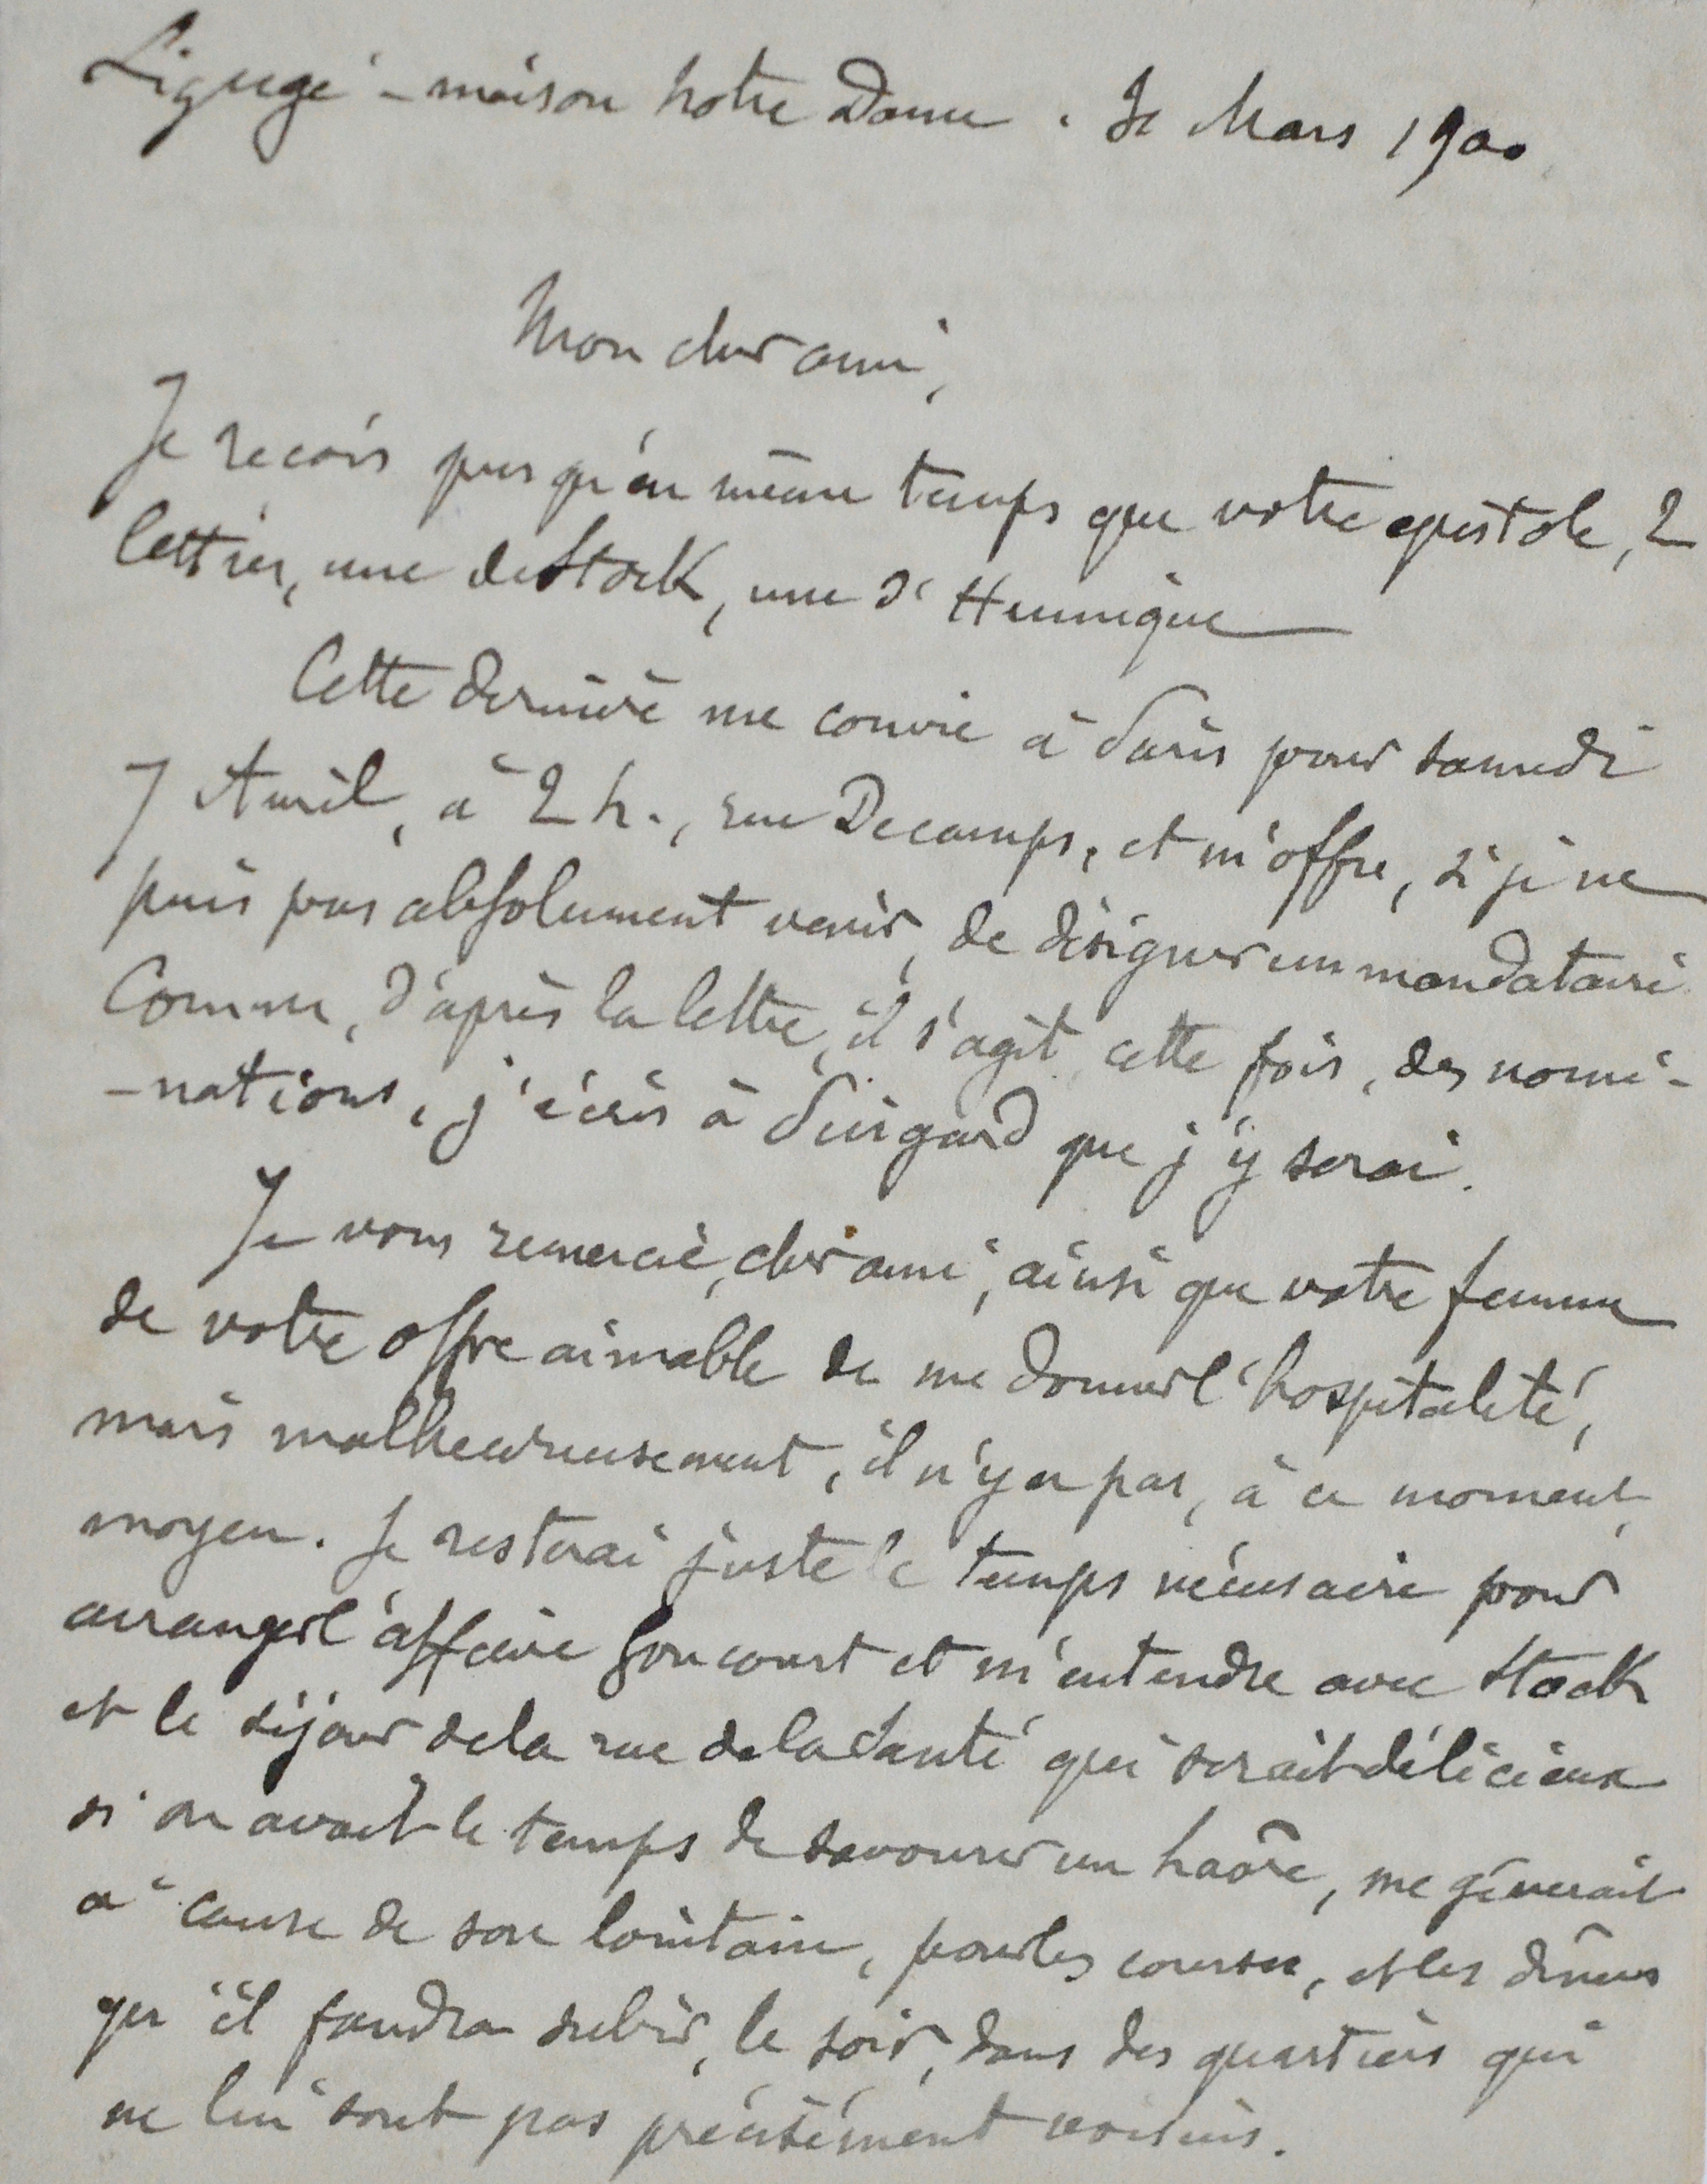 Ligugé - maison Notre Dame. 30 Mars 1900
Mon cher ami,
Je reçois presqu'en même temps que votre epistole, 2
lettres, une de Stock, une d'Hennique
Cette dernière me convie à Paris pour samedi
7 Avril, à 2 h., rue Decamps, et m'offre, si je ne
puis pas absolument venir, de désigner un mandataire
Comme, d'après la lettre, il s'agit, cette fois, des nomi-
-nations, j'écris à Duigard que j'y serai.
Je vous remercie, cher ami, ainsi que votre femme
de votre offre aimable de me donner l'hospitalité,
mais malheureusement, il n'y a pas, à ce moment,
moyen. Je resterai juste le temps nécessaire pour
arranger l'affaire Goncourt et m'entendre avec Stock
et le séjour de la rue de la Santé qui serait délicieux
si on avait le temps de savourer un hâvre, me gênerait
à cause de son lointain, pour les courses, et les dîners
qu'il faudra subir, le soir, dans des quartiers qui
ne lui sont pas précisément voisins.